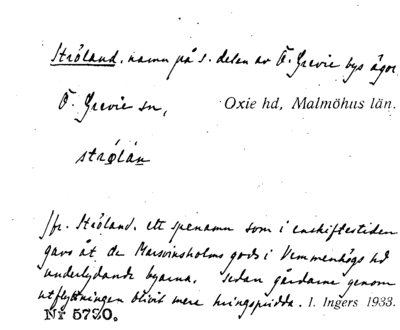 Ströland, namn på s. delen av Ö. Grevie bys ägor.
Ö. Grevie sn,
Oxie hd, Malmöhus län.
strølán
Jfr. Ströland, ett spenamn som i enskiftestiden
gavs åt de Marsvinsholms gods i Vemmenhögs hd
underlydande byarna, sedan gårdarne genom
utflyttningen blivit mera kringspridda. I. Ingers 1933.
Nr 5720.